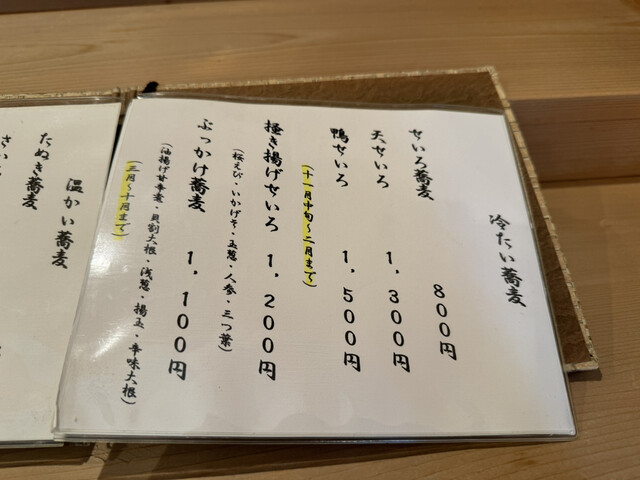 冷たい蕎麦
せいろ蕎麦 800円
天せいろ 1,300円
鴨せいろ 1,500円
(十一月中旬〜二月まで)
掻き揚げせいろ 1,200円
(桜えび・いかげそ・玉葱・人参・三つ葉)
ぶっかけ蕎麦 1,100円
(油揚げ甘辛煮・貝割大根・浅葱・揚玉・辛味大根)
(三月〜十月まで)
温かい蕎麦
たぬき蕎麦